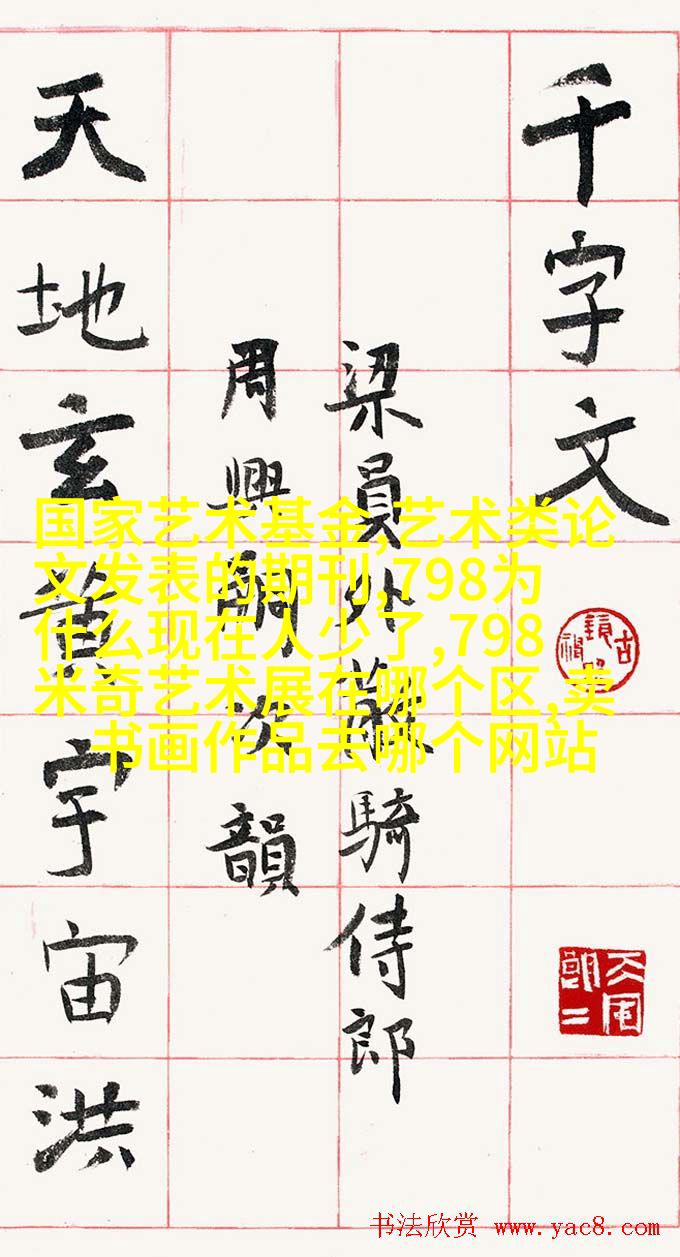 千字文
梁員外散騎侍郎
周興嗣次韻
天地玄黃宇宙洪
国家艺术基金,艺术类论
文发表的期刊,798为
什么现在人少了,798
米奇艺术展在哪个区,卖
书画作品去哪个网站
书法欣赏 www.yac8.com